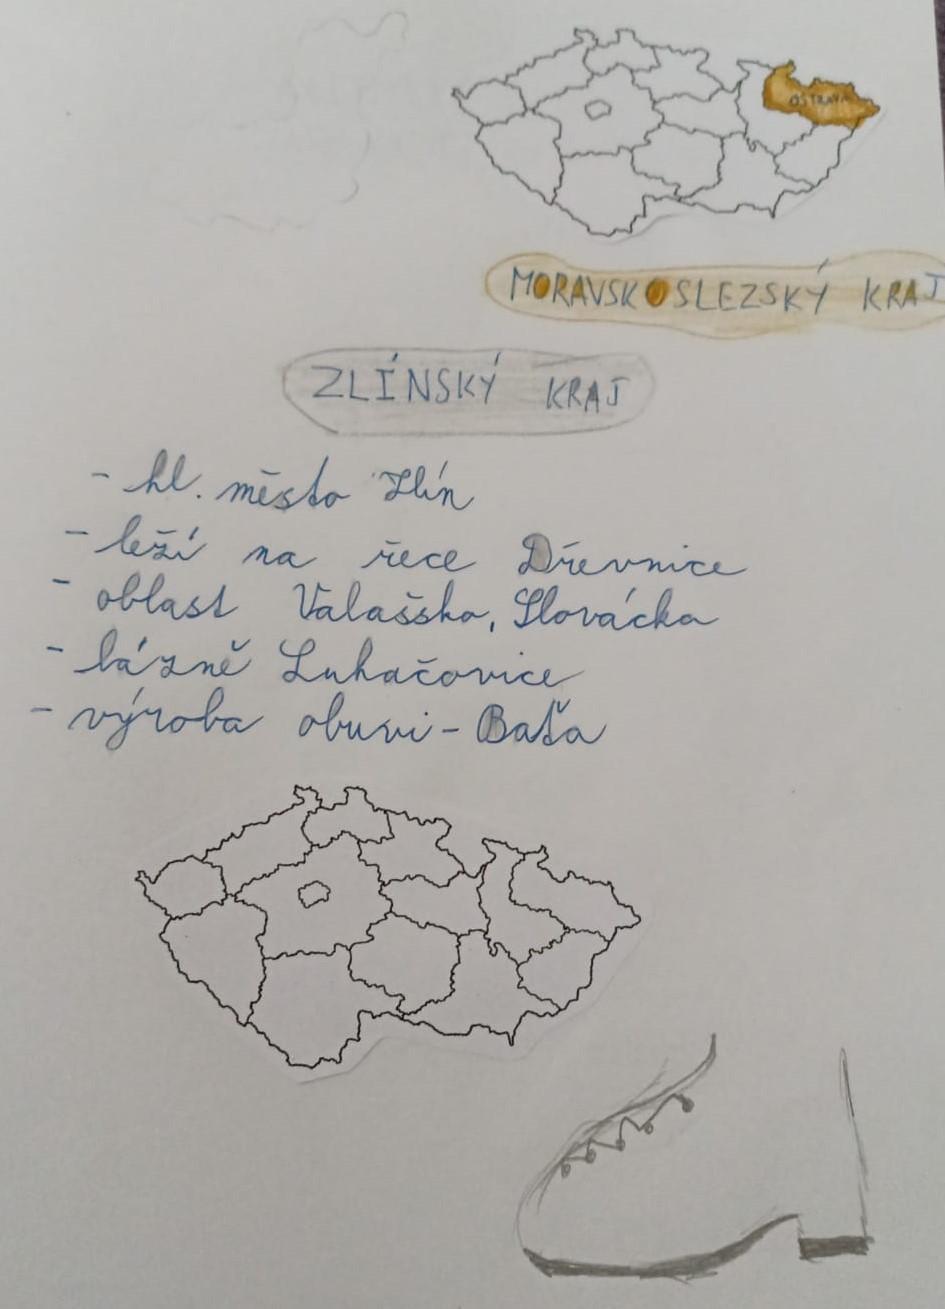 OSTRAVA
MORAVSKOSLEZSKÝ KRAJ
ZLÍNSKÝ KRAJ
- hl. město Zlín
- leží na řece Dřevnice
- oblast Valašsko, Slovácko
- lázně Luhačovice
- výroba obuvi - Baťa